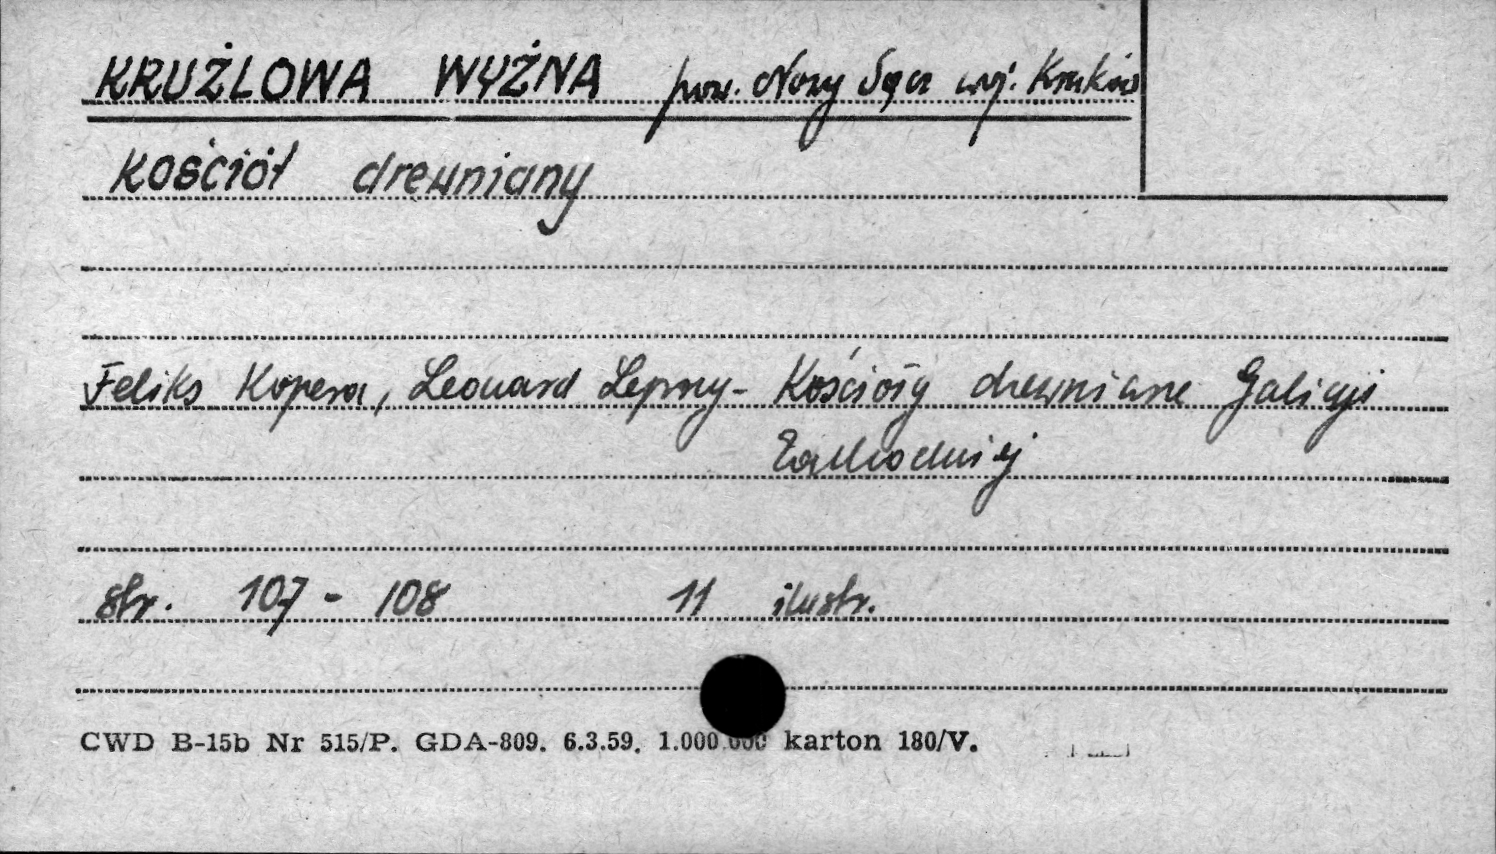 KRUŻLOWA WYŻNA pow. Nowy Sącz woj. Kraków
Kościół drewniany
Feliks Kopera, Leonard Lepszy - Kościoły drewniane Galicji
Zachodniej
str. 107 - 108 11 ilustr.
CWD B-15b Nr 515/P. GDA-809. 6.3.59. 1.000.000 karton 180/V.